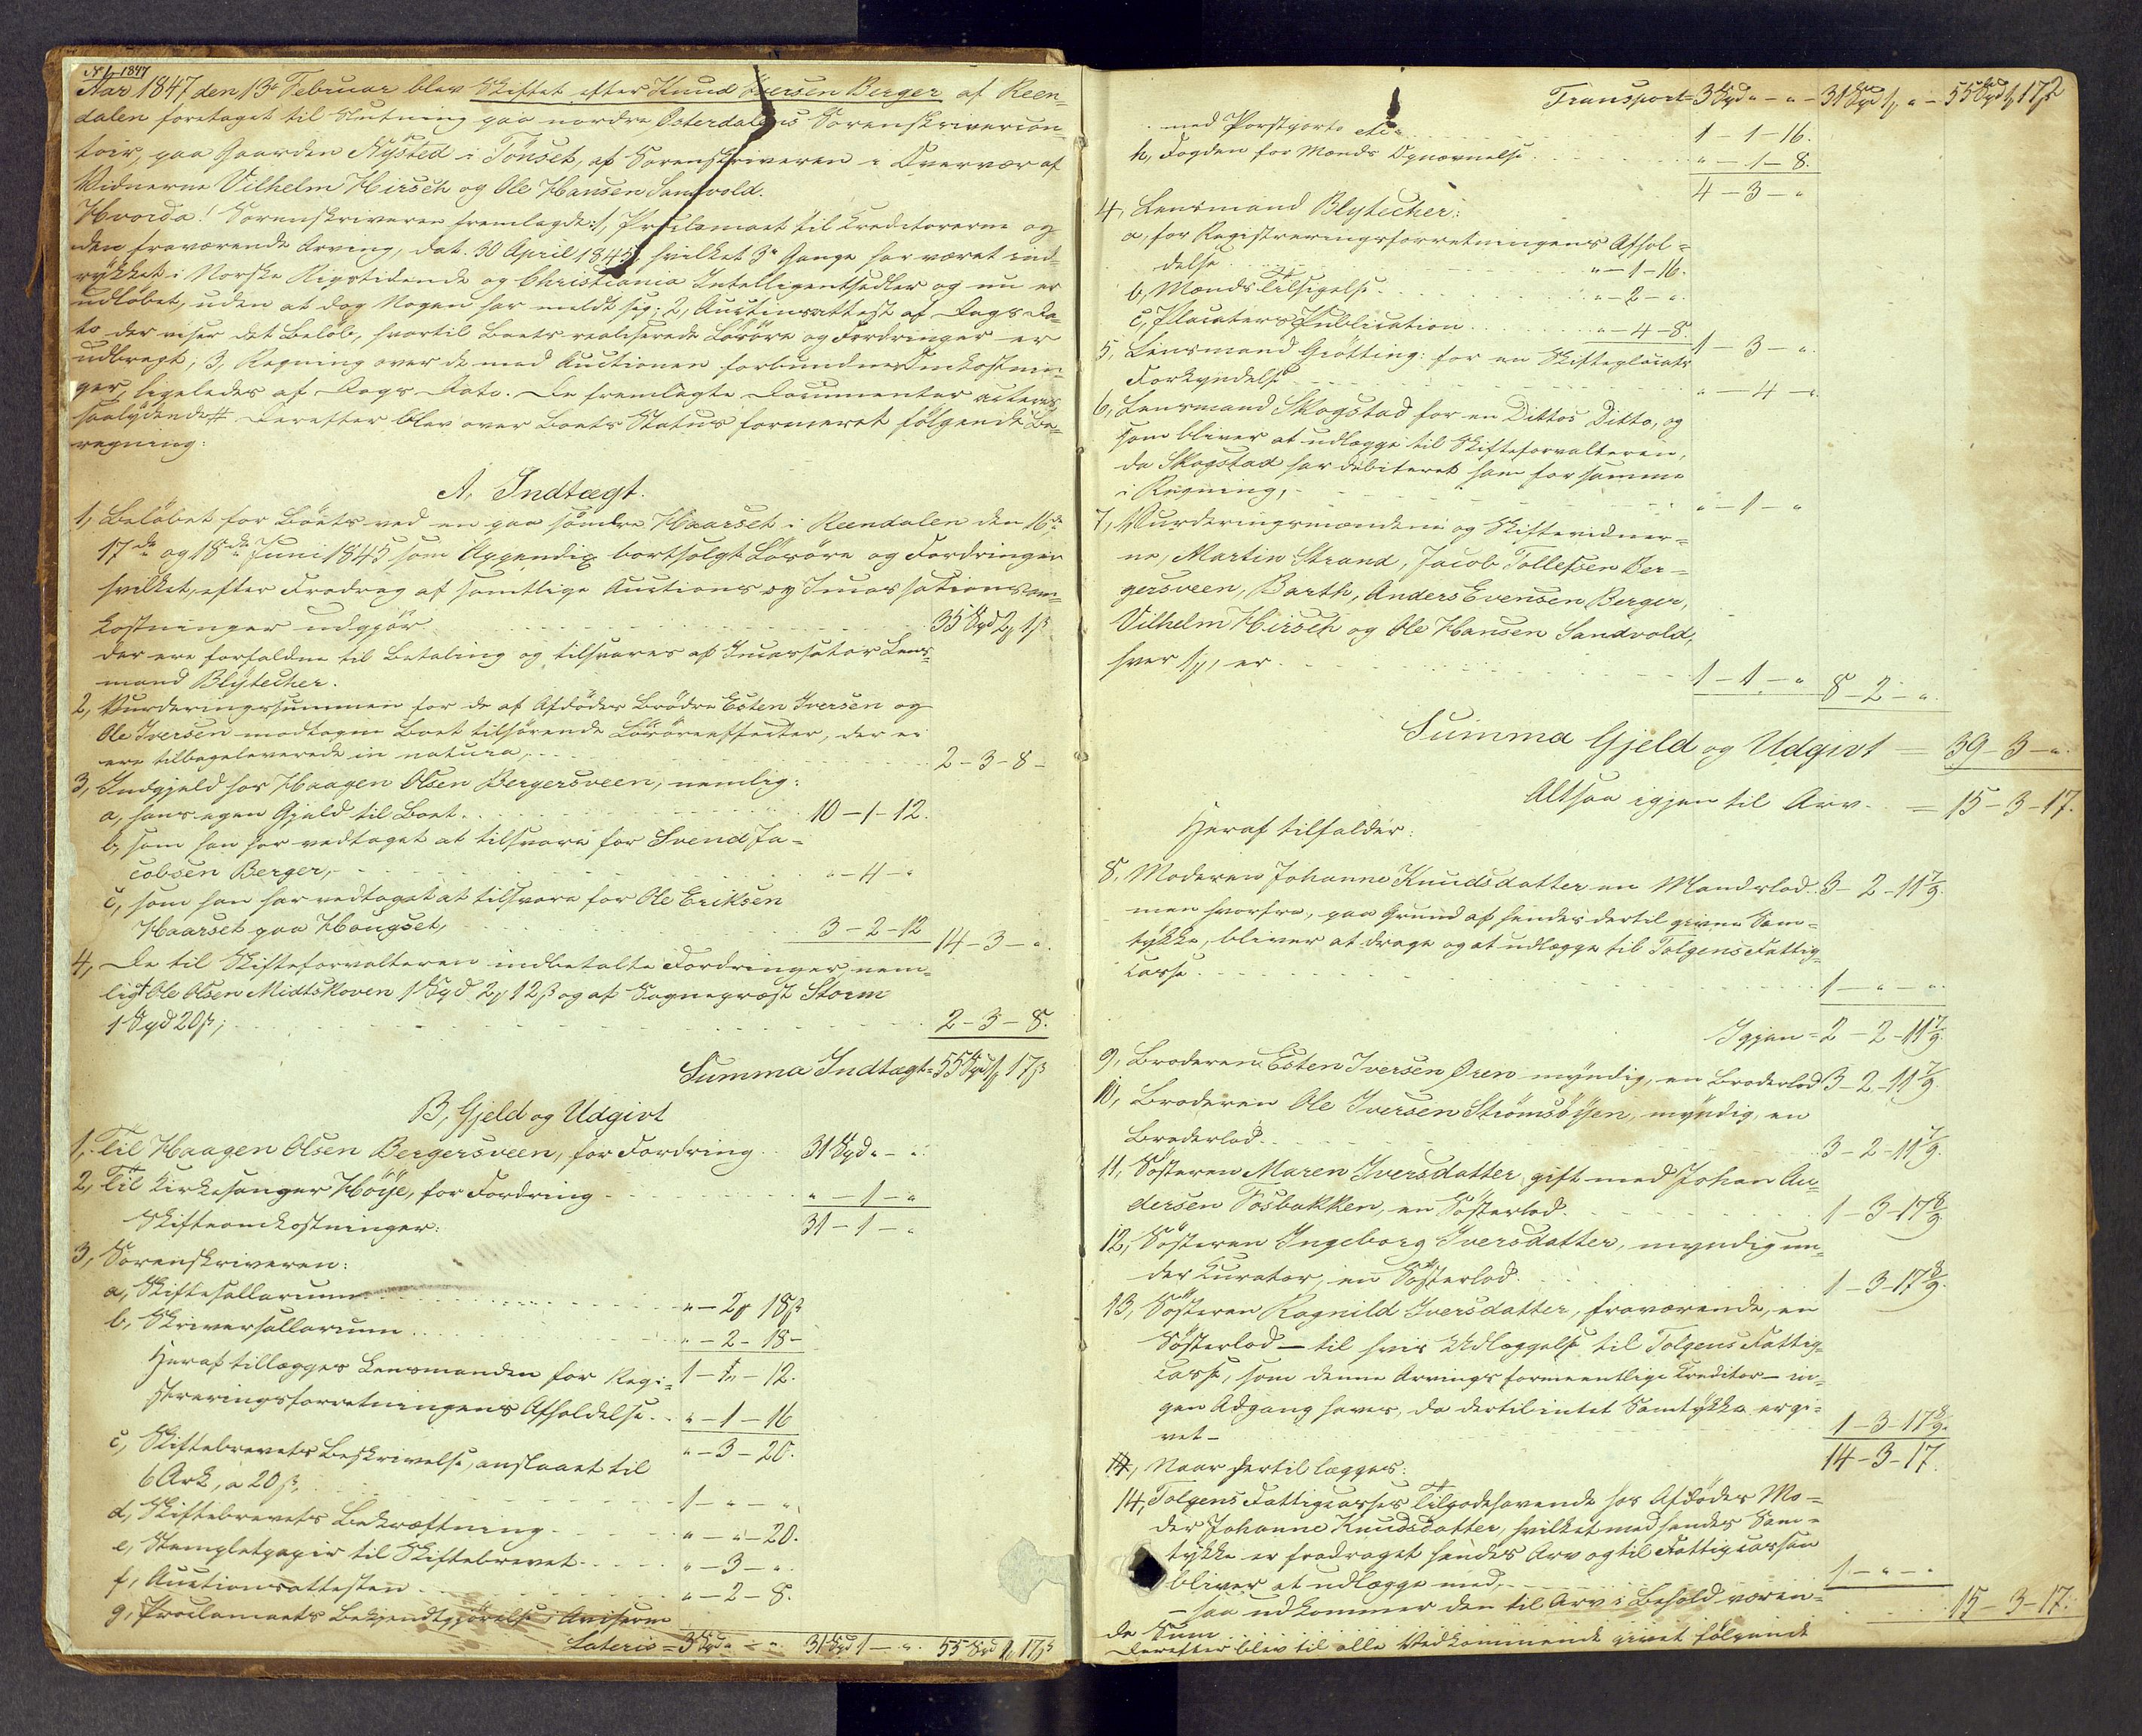 No 1 - 1847
Aar 1847 den 13de Februar blev Skiftet efter Knud Iversen Berger af Reen-
dalen foretaget til Slutning paa nordre Østerdalens Sorenskrivercon-
toir, paa Gaarden Nÿsted i Tønset, af Sorenskriveren i Overvær af
Vidnerne Vilhelm Hirsch og Ole Hansen Sandvold.
Hvorda! Sorenskriveren fremlagde: 1, Proclamaet til Creditorerne og
den fraværende Arving, dat. 30 April 1845, hvilket 3de Gange har været ind-
rÿkket i Norske Rigstidende og Christiania Intelligentsedler og nu er
udløbet, uden at dog Nogen har meldt sig; 2, Auctionsattest af Dags Da-
to der viser det Beløb, hvortil Boets realiserede Løsøre og Fordringer er
udbragt; 3, Regning over de med Auctionen forbundne Omkostnin-
ger, ligeledes af Dags Dato. De fremlagte Documenter acteres
saalÿdende # Derefter blev over Boets Status formeret følgende Be-
regning:
A, Indtægt.
1, Beløbet for Boets ved en paa søndre Haarset i Reendalen den 16de
17de og 18de Juni 1845 som Appendix bortsolgt Løsøre og Fordringer
hvilket, efter Fradrag af samtlige Auctions og Incassationsom-
kostninger udgjør 35 Spd 2 1 ß
der ere forfaldne til Betaling og tilsvares af Incassator Lens-
mand Blÿtecher.
2, Vurderingssummen for de af Afdødes Brødre Esten Iversen og
Ole Iversen modtagne Boet tilhørende Løsøreeffecter, der ei
ere tilbageleverede in natura, 2 - 3 - 8 -
3, Indgjeld hos Haagen Olsen Bergersveen, nemlig:
a, hans egen Gjeld til Boet. 10 - 1 - 12.
b, som han har vedtaget at tilsvare for Svend Ja-
cobsen Berger, " - 4 - "
c, som han har vedtaget at tilsvare for Ole Eriksen
Haarset paa Haugset, 3 - 2 - 12 14 - 3 - ".
4, De til Skifteforvalteren indbetalte Fordringer nem-
lig Ole Olsen Midtskoven 1 Spd 2 12 ß og af Sognepræst Storm
1 Spd 20 ß; 2 - 3 - 8.
Summa Indtægt = 55 Spd 1 17 ß
B, Gjeld og Udgivt
1, Til Haagen Olsen Bergersveen, for Fordring 31 Spd " - "
2, Til Kirkesanger Høÿe, for Fordring " - 1 - "
Skifteomkostninger: 31 - 1 - "
3, Sorenskriveren:
a, Skiftesallarium " - 2 18 ß
b, Skriversallarium " - 2 - 18 -
Heraf tillægges Lensmanden for Regi- 1 - " - 12.
streringsforretningens Afholdelse. " - 1 - 16
" - 3 - 20.
c, Skiftebrevets Beskrivelse, anslaaet til
6 Ark, a 20 ß, 1 - " - ".
d, Skiftebrevets Bekræftning " - " - 20.
e, Stempletpapir til Skiftebrevet " - 3 - ".
f, Auctionsattesten " - 2 - 8.
g, Proclamaets Bekjendtgjørelse i Aviserne
Lateris = 3 Spd " - ". 31 Spd 1 - ". 55 Spd 1 17 ß
2
Transport = 3 Spd " - " - 31 Spd 1 " - 55 Spd 1 17 ß
med Postporto etc. 1 - 1 - 16.
h, Fogden for Mænds Opnævnelse " - 1 - 8.
4 - 3 - "
4, Lensmand Blytecher:
a, for Registreringsforretningens Afhol-
delse " - 1 - 16.
b, Mænds Tilsigelse " - 2 - ".
c, Placaters Publication " - 4 - 8
1 - 3 - ".
5, Lensmand Grøtting: for en Skifteplacats
Forkyndelse " - 4 - ".
6, Lensmand Skogstad for en Dittos Ditto, og
som bliver at udlægge til Skifteforvalteren,
da Skogstad har debiteret ham for samme
i Regning, " - 1 - "
7, Vurderingsmændene og Skiftevidner-
ne, Martin Strand, Jacob Tollefsen Ber-
gersveen, Barth, Anders Evensen Berger,
Vilhelm Hirsch og Ole Hansen Sandvold,
hver 1, er 1 - 1 - " 8 - 2 - ".
Summa Gjeld og Udgivt = 39 - 3 - ".
Altsaa igjen til Arv = 15 - 3 - 17.
Heraf tilfalder:
8, Moderen Johanne Knudsdatter en Mandslod. 3 - 2 - 11 7/9.
men hvorfra, paa Grund af hendes dertil givne Sam-
tykke, bliver at drage og at udlægge til Tolgens Fattig-
casse 1 - " - ".
Igjen = 2 - 2 - 11 7/9.
9, Broderen Esten Iversen Øren myndig, en Broderlod 3 - 2 - 11 7/9.
10, Broderen Ole Iversen Strömsöÿen, mÿndig, en
Broderlod 3 - 2 - 11 7/9.
11, Søsteren Maren Iversdatter, gift med Johan An-
dersen Fosbakken, en Søsterlod 1 - 3 - 17 8/9
12, Søsteren Ingeborg Iversdatter, myndig un-
der Kurator, en Søsterlod 1 - 3 - 17 8/9.
13, Søsteren Ragnild Iversdatter, fraværende, en
Søsterlod — til hvis Udlæggelse til Tolgens Fattig-
casse, som denne Arvings formeentlige Creditor — in-
gen Adgang haves, da dertil intet Samtÿkke er gi-
vet - 1 - 3 - 17 8/9.
14 - 3 - 17.
14, Naar hertil lægges:
14, Tolgens Fattigcasses Tilgodehavende hos Afdødes Mo-
der Johanne Knudsdatter, hvilket med hendes Sam-
tykke er fradraget hendes Arv og til Fattigcassen
bliver at udlægge med, 1 - " - "
- saa udkommer den til Arv i Behold væren-
de Sum 15 - 3 - 17.
Derefter blev til alle Vedkommende givet følgende